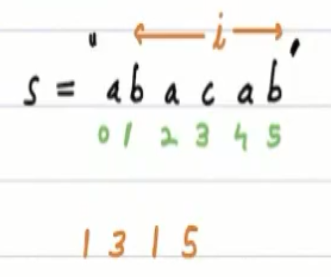 ← i →
s = "abacab"
0 1 2 3 4 5
1 3 1 5